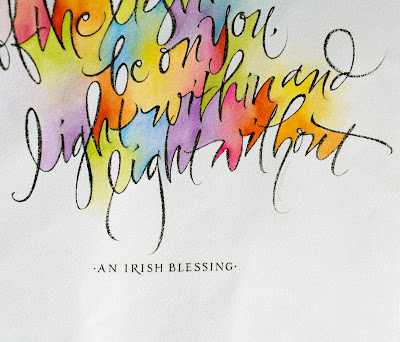 of the
be on you,
light within and
light without
·AN IRISH BLESSING·